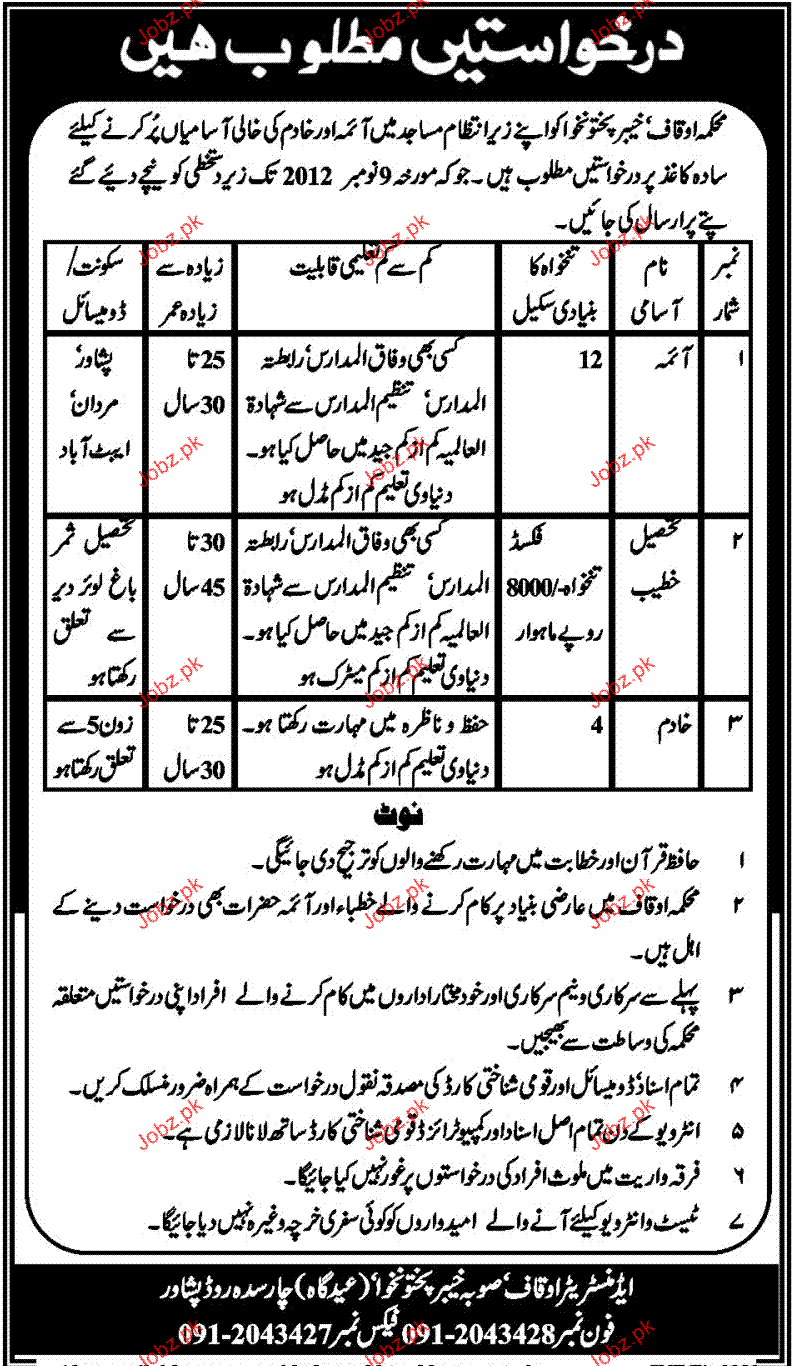 درخواستیں مطلوب ھیں
محکمہ اوقاف، خیبر پختونخوا کو اپنے زیر انتظام مساجد میں آئمہ اور خادم کی خالی آسامیاں پُر کرنے کیلئے
سادہ کاغذ پر درخواستیں مطلوب ہیں۔ جو کہ مورخہ 9 نومبر 2012 تک زیر دستخطی کو نیچے دیئے گئے
پتے پر ارسال کی جائیں۔
نمبر شمار
نام آسامی
تنخواہ کا بنیادی سکیل
کم سے کم تعلیمی قابلیت
زیادہ سے زیادہ عمر
سکونت/ ڈومیسائل
۱
آئمہ
12
کسی بھی وفاق المدارس، رابطتہ
المدارس، تنظیم المدارس سے شہادۃ
العالمیہ کم از کم جید میں حاصل کیا ہو۔
دنیاوی تعلیم کم از کم مڈل ہو
25 تا
30 سال
پشاور،
مردان،
ایبٹ آباد
۲
تحصیل
خطیب
فکسڈ
تنخواہ -/8000
روپے ماہوار
کسی بھی وفاق المدارس، رابطتہ
المدارس، تنظیم المدارس سے شہادۃ
العالمیہ کم از کم جید میں حاصل کیا ہو۔
دنیاوی تعلیم کم از کم میٹرک ہو
30 تا
45 سال
تحصیل ثمر
باغ لوئر دیر
سے تعلق
رکھتا ہو
۳
خادم
4
حفظ و ناظرہ میں مہارت رکھتا ہو۔
دنیاوی تعلیم کم از کم مڈل ہو
25 تا
30 سال
زون 5 سے
تعلق رکھتا ہو
نوٹ
۱ حافظ قرآن اور خطابت میں مہارت رکھنے والوں کو ترجیح دی جائیگی۔
۲ محکمہ اوقاف میں عارضی بنیاد پر کام کرنے والے خطباء اور آئمہ حضرات بھی درخواست دینے کے
اہل ہیں۔
۳ پہلے سے سرکاری و نیم سرکاری اور خود مختار اداروں میں کام کرنے والے افراد اپنی درخواستیں متعلقہ
محکمہ کی وساطت سے بھیجیں۔
۴ تمام اسناد، ڈومیسائل اور قومی شناختی کارڈ کی مصدقہ نقول درخواست کے ہمراہ ضرور منسلک کریں۔
۵ انٹرویو کے دن تمام اصل اسناد اور کمپیوٹرائزڈ قومی شناختی کارڈ ساتھ لانا لازمی ہے۔
۶ فرقہ واریت میں ملوث افراد کی درخواستوں پر غور نہیں کیا جائیگا۔
۷ ٹیسٹ و انٹرویو کیلئے آنے والے امیدواروں کو کوئی سفری خرچہ وغیرہ نہیں دیا جائیگا۔
ایڈمنسٹریٹر اوقاف، صوبہ خیبر پختونخوا، (عیدگاہ) چارسدہ روڈ پشاور
فون نمبر 091-2043428 فیکس نمبر 091-2043427
Jobz.pk